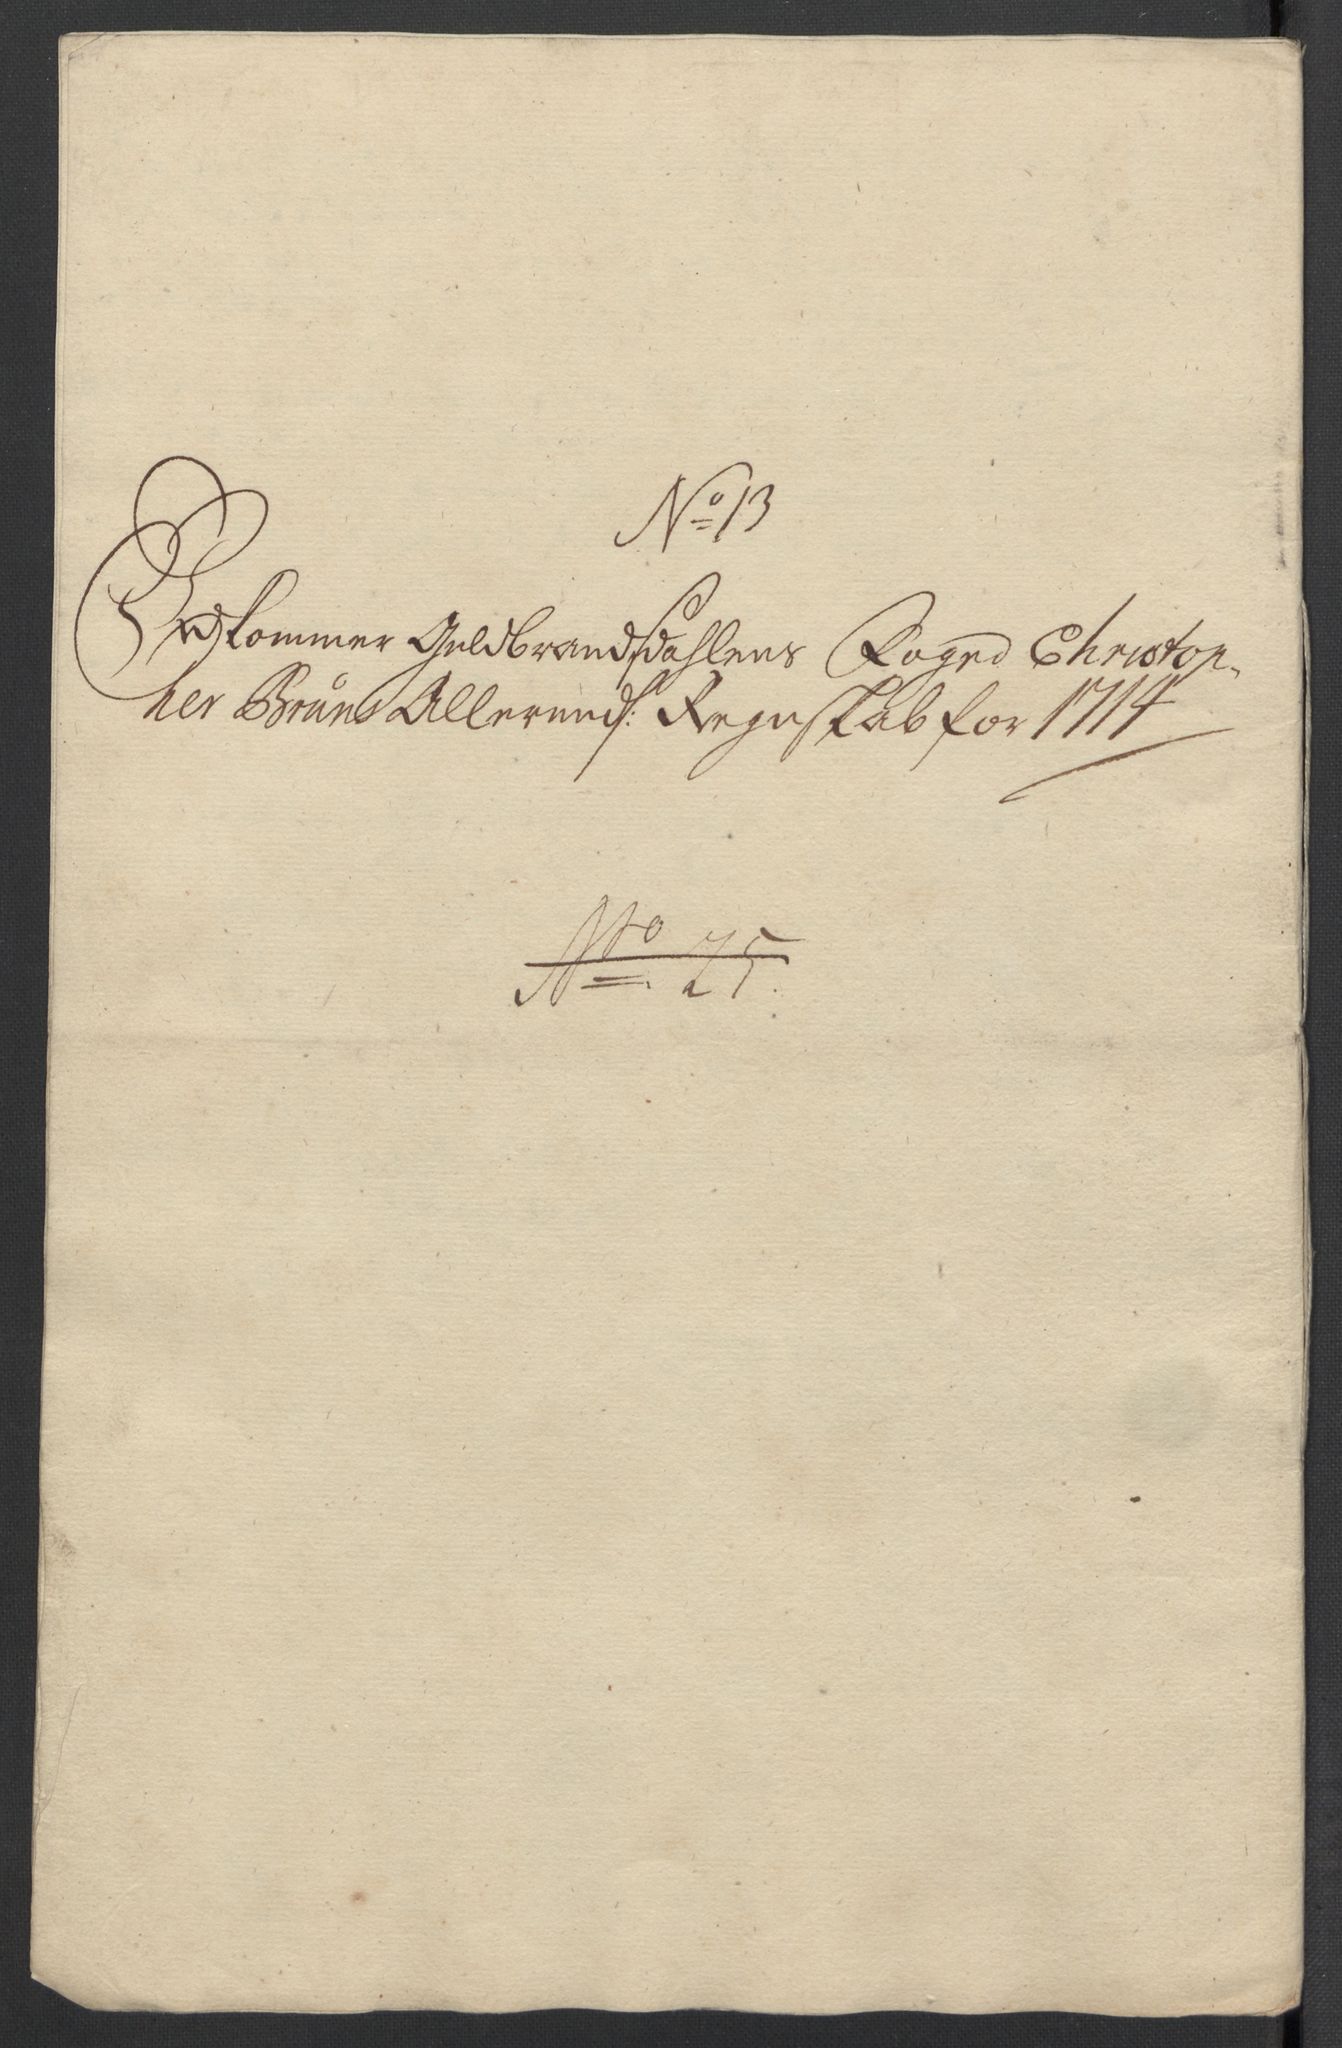 No 13
Vedkommer Guldbrandsdahlens Foged Christop-
her Brúns Allerunds: Regnskab for 1714
No. 25.